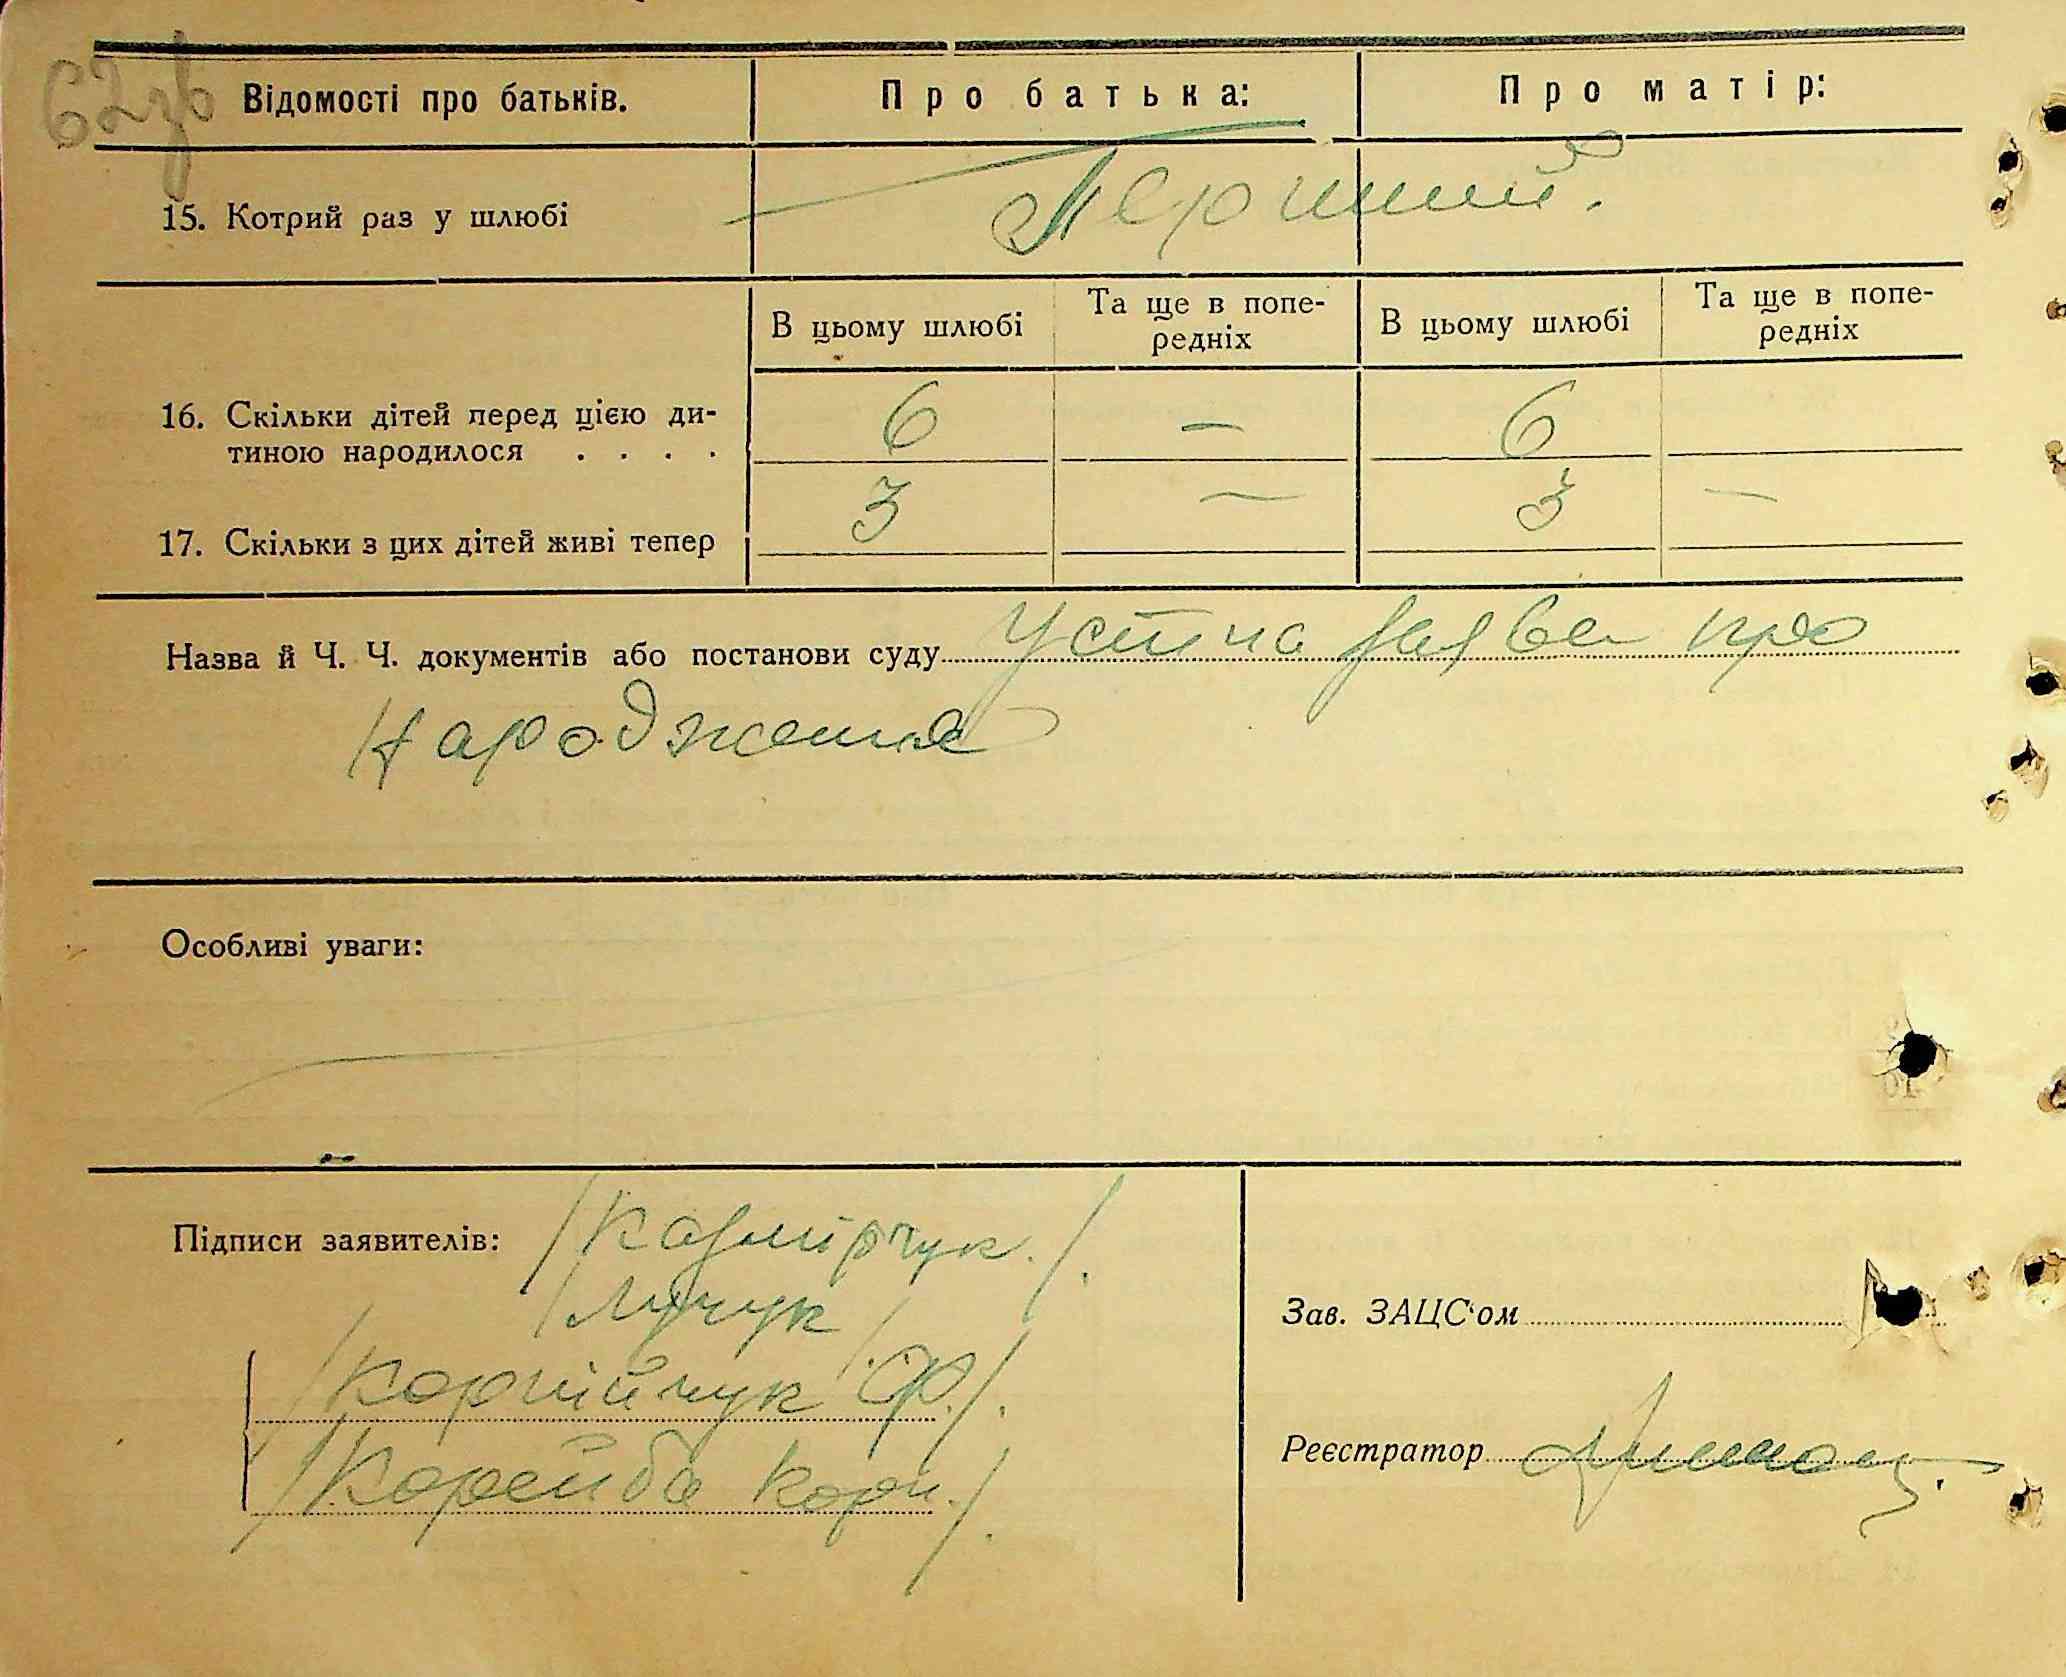 62зв
Відомості про батьків. Про батька: Про матір:
15. Котрий раз у шлюбі Перший.
В цьому шлюбі Та ще в попе- В цьому шлюбі Та ще в попе-
редніх редніх
16. Скільки дітей перед цією ди-
тиною народилося . . . . 6 — 6
17. Скільки з цих дітей живі тепер 3 — 3 —
Назва й Ч. Ч. документів або постанови суду Устна заява про
народження
Особливі уваги:
Підписи заявителів: /Казмірчук./.
/Лучук/.
/Корнійчук Ф./.
/Корейба Корн./.
Зав. ЗАЦС'ом
Реєстратор